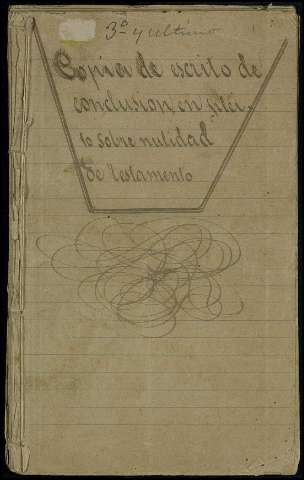 3º y ultimo
Copia de escrito de
conclusion en plei-
to sobre nulidad
de testamento